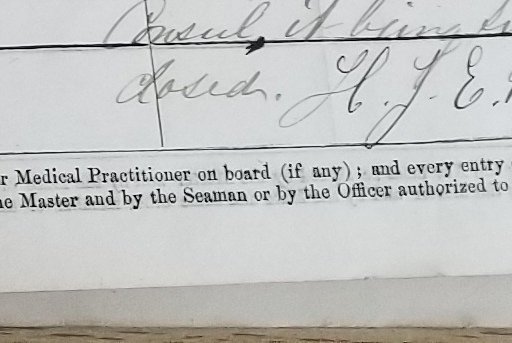 Consul, it being
closed. H. J. E.
r Medical Practitioner on board (if any); and every entry
he Master and by the Seaman or by the Officer authorized to